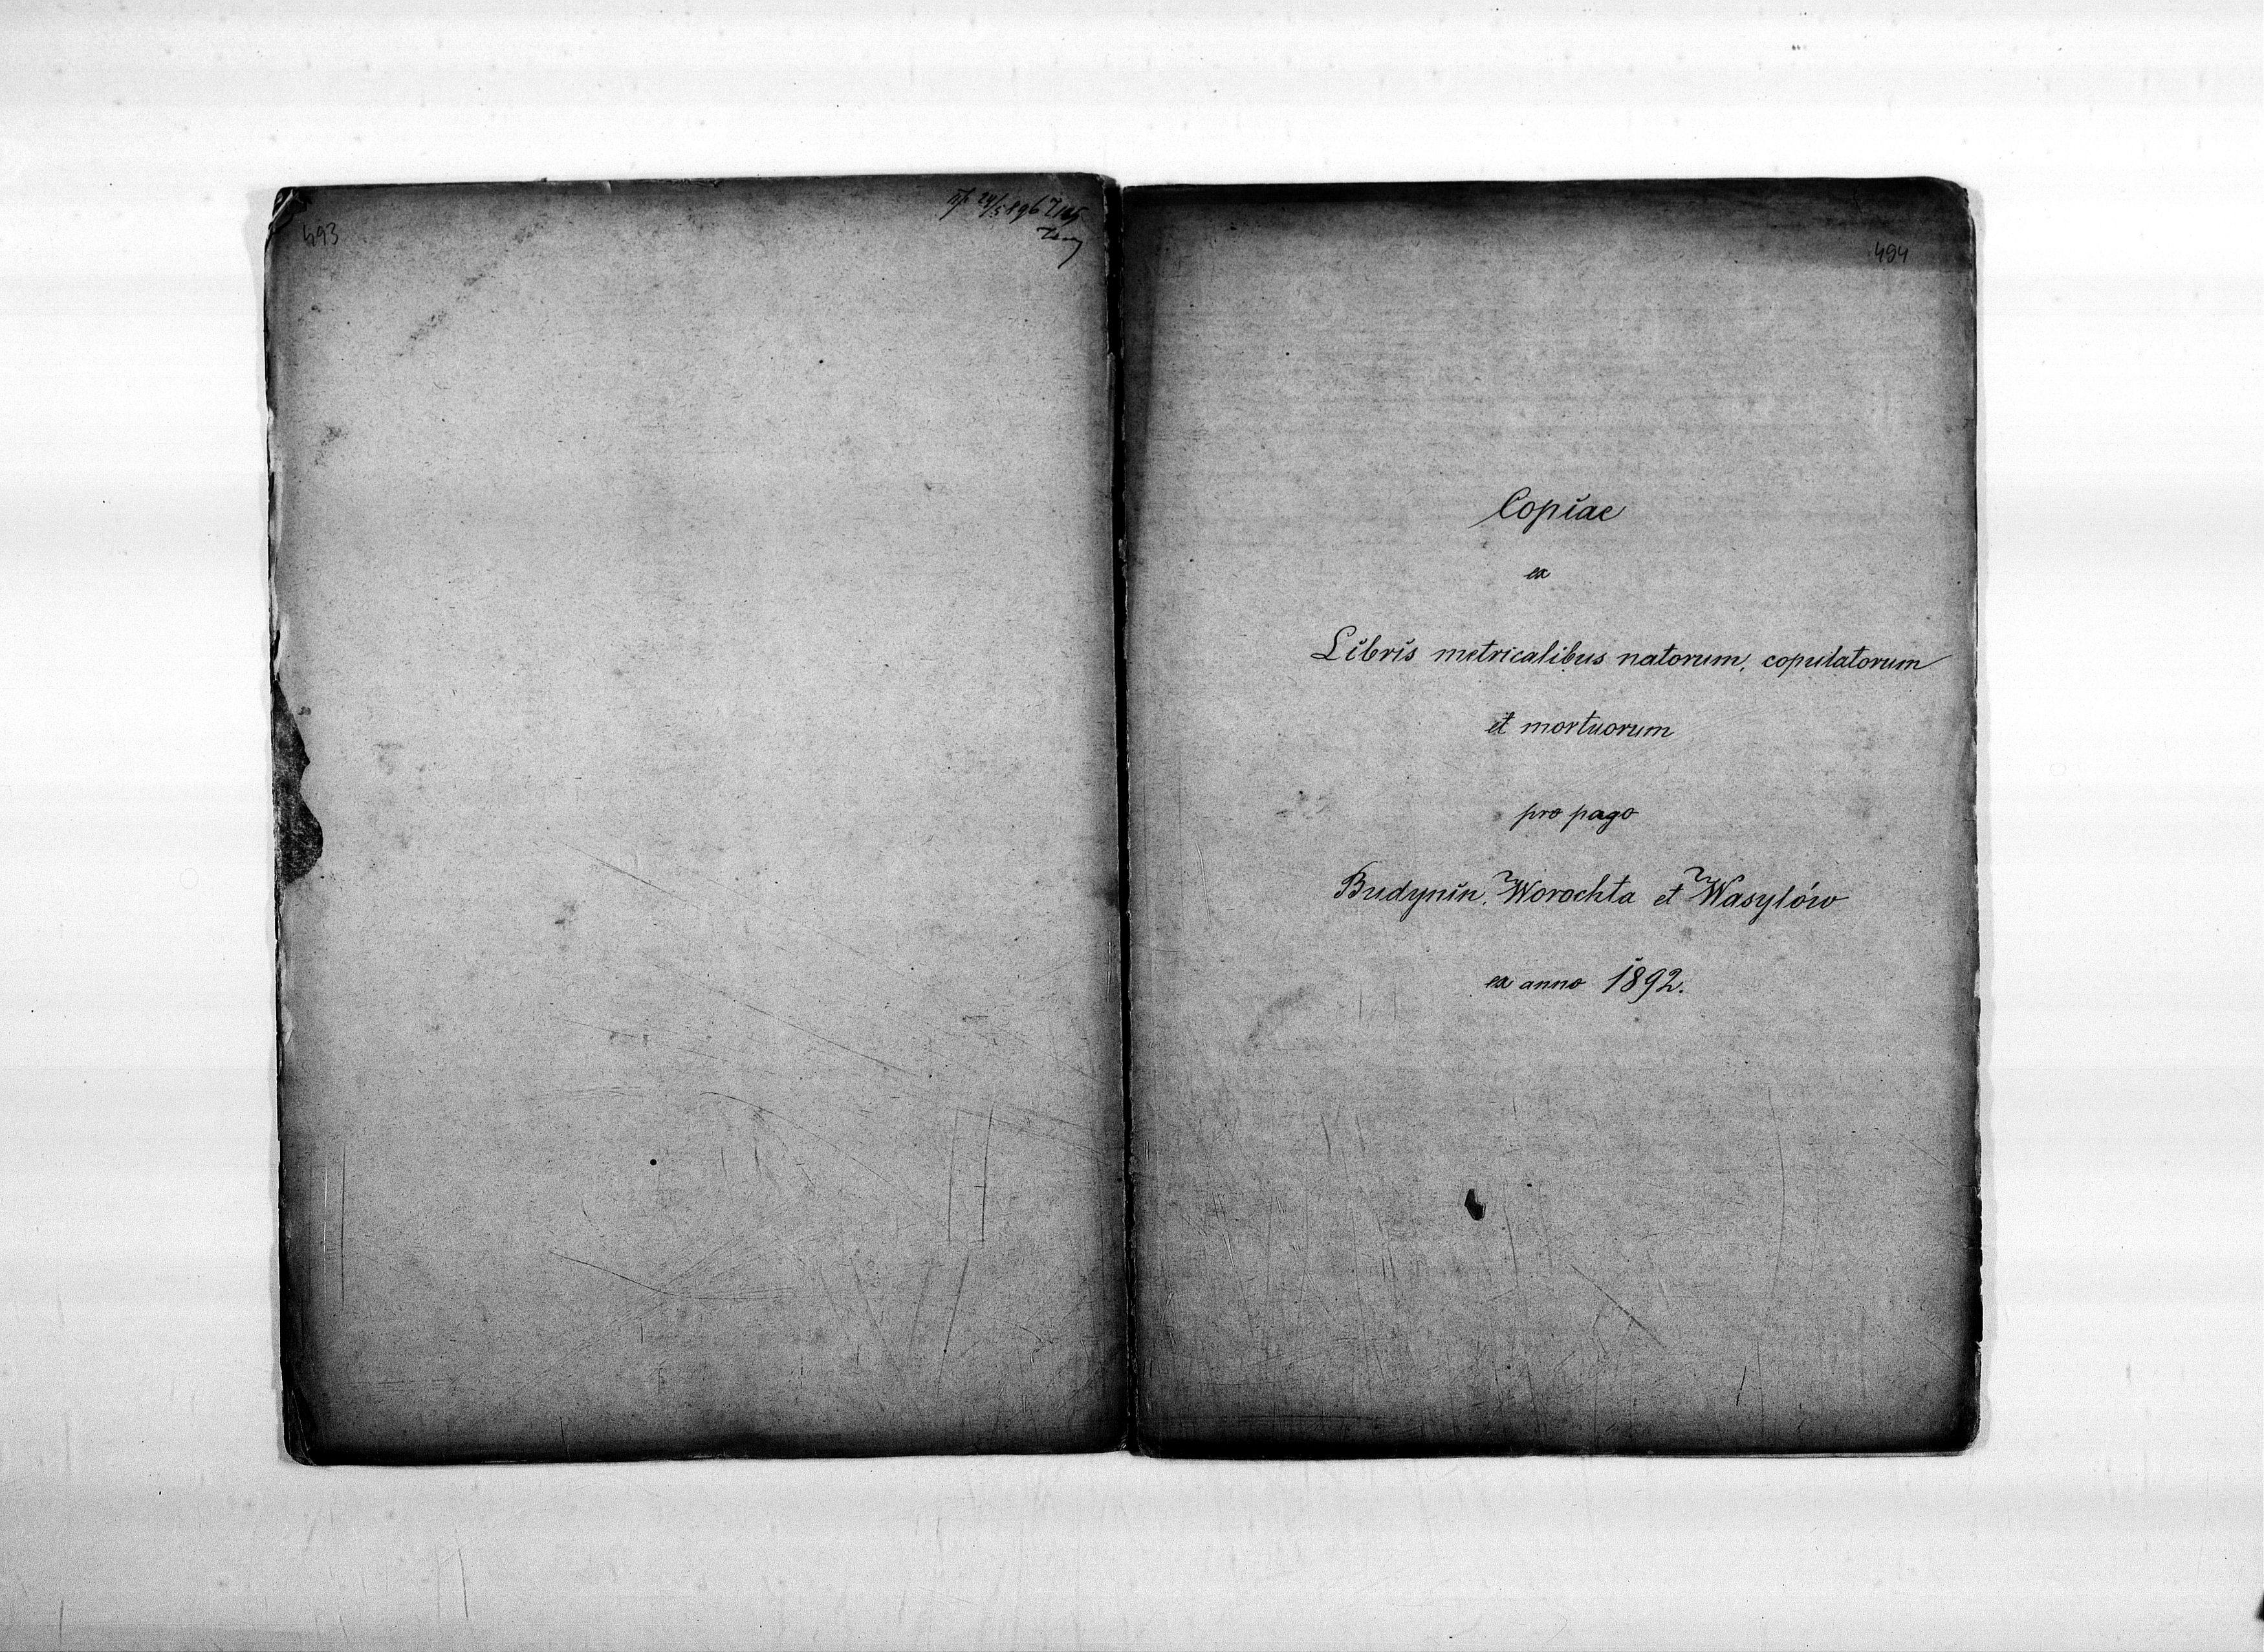 493
494
Copiae
ex
Libris metricalibus natorum, copulatorum
et mortuorum
pro pago
Budynin, Worochta et Wasylów
ex anno 1892.